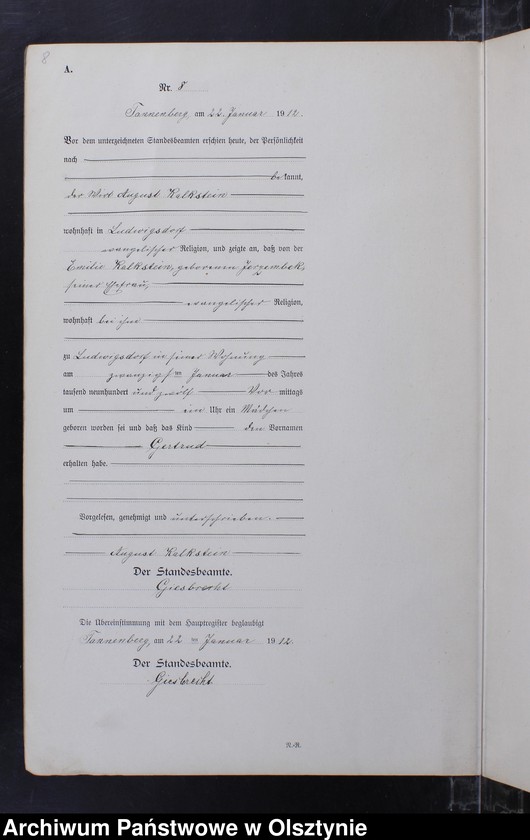 8
A.
Nr. 8
Tannenberg, am 22. Januar 1912.
Vor dem unterzeichneten Standesbeamten erschien heute, der Persönlichkeit
nach
bekannt,
der Wirt August Kalkstein
wohnhaft in Ludwigsdorf
evangelischer Religion, und zeigte an, daß von der
Emilie Kalkstein, geborenen Jerzembek,
seiner Ehefrau,
evangelischer Religion,
wohnhaft bei ihm
zu Ludwigsdorf in seiner Wohnung
am zwanzigsten Januar des Jahres
tausend neunhundert und zwölf Vor mittags
um ein Uhr ein Mädchen
geboren worden sei und daß das Kind den Vornamen
Gertrud
erhalten habe.
Vorgelesen, genehmigt und unterschrieben.
August Kalkstein
Der Standesbeamte.
Giesbrecht
Die Übereinstimmung mit dem Hauptregister beglaubigt
Tannenberg, am 22 ten Januar 1912.
Der Standesbeamte.
Giesbrecht.
R.-R.
Archiwum Państwowe w Olsztynie